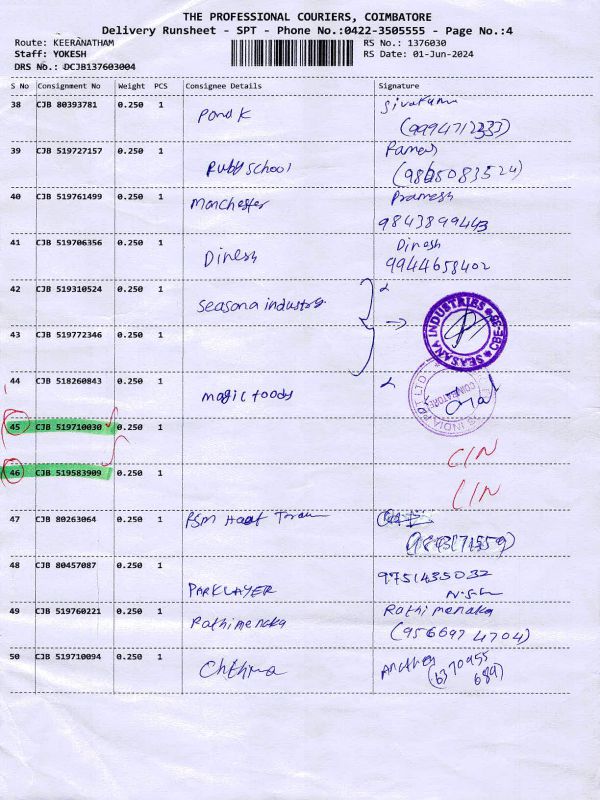 THE PROFESSIONAL COURIERS, COIMBATORE
Delivery Runsheet - SPT - Phone No.:0422-3505555 - Page No.:4
Route: KEERANATHAM RS No.: 1376030
Staff: YOKESH RS Date: 01-Jun-2024
DRS No.: DCJB137603004
S No Consignment No Weight PCS Consignee Details Signature
38 CJB 80393781 0.250 1 Pond K Sivakumar
(9994712333)
39 CJB 519727157 0.250 1 Ruby school Ramesh
(9865083524)
40 CJB 519761499 0.250 1 Manchester Pramesh
9843899443
41 CJB 519706356 0.250 1 Dinesh Dinesh
9944658402
42 CJB 519310524 0.250 1 Seasana industries
SEASANA INDUSTRIES CBE
43 CJB 519772346 0.250 1
44 CJB 518260843 0.250 1 magic foods
INDIA PVT LTD COIMBATORE
45 CJB 519710030 0.250 1 CIN
46 CJB 519583909 0.250 1 CIN
47 CJB 80263064 0.250 1 PSM
48 CJB 80457087 0.250 1 PARKLAYER 9751435032
49 CJB 519760221 0.250 1 Rathimenaka Rathimenaka
(9566974704)
50 CJB 519710094 0.250 1 Chthra
(6370955
689)